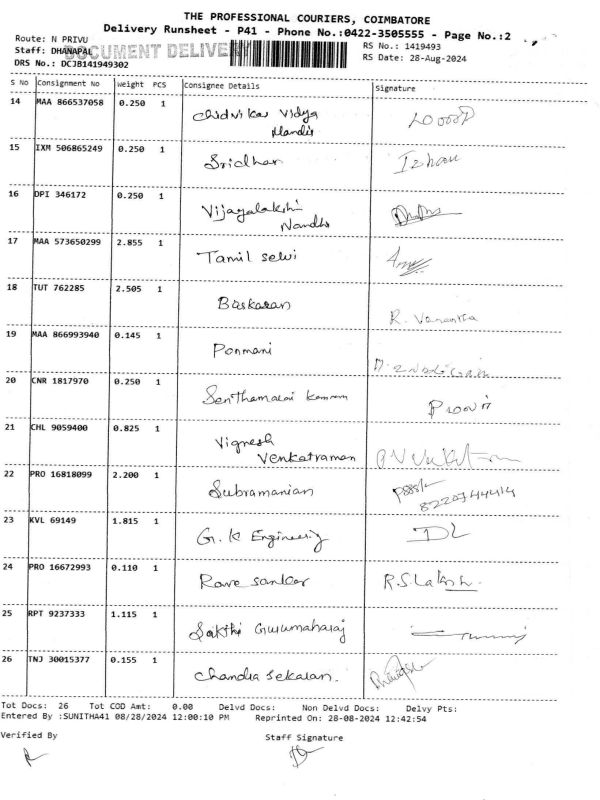 THE PROFESSIONAL COURIERS, COIMBATORE
Delivery Runsheet - P41 - Phone No.:0422-3505555 - Page No.:2
Route: N PRIVU
RS No.: 1419493
Staff: DHANAPAL
DOCUMENT DELIVERY
RS Date: 28-Aug-2024
DRS No.: DCJB141949302
S No Consignment No Weight PCS Consignee Details Signature
14 MAA 866537058 0.250 1 Chidvikas Vidya
Mandir
15 IXM 506865249 0.250 1 Sridhar
16 DPI 346172 0.250 1 Vijayalakshi
Nandhi
17 MAA 573650299 2.855 1 Tamil selvi
18 TUT 762285 2.505 1 Baskaran R. Vasantha
19 MAA 866993940 0.145 1 Ponmani
20 CNR 1817970 0.250 1 Senthamarai
21 CHL 9059400 0.825 1 Vignesh
Venkatraman
22 PRO 16818099 2.200 1 Subramanian
8220744414
23 KVL 69149 1.815 1 G. K Engineering DL
24 PRO 16672993 0.110 1 Ravi sankar R.S.Laksh
25 RPT 9237333 1.115 1 Sakthi Gurumaharaj
26 TNJ 30015377 0.155 1 Chandra Sekaran.
Tot Docs: 26 Tot COD Amt: 0.00 Delvd Docs: Non Delvd Docs: Delvy Pts:
Entered By :SUNITHA41 08/28/2024 12:00:10 PM Reprinted On: 28-08-2024 12:42:54
Verified By Staff Signature